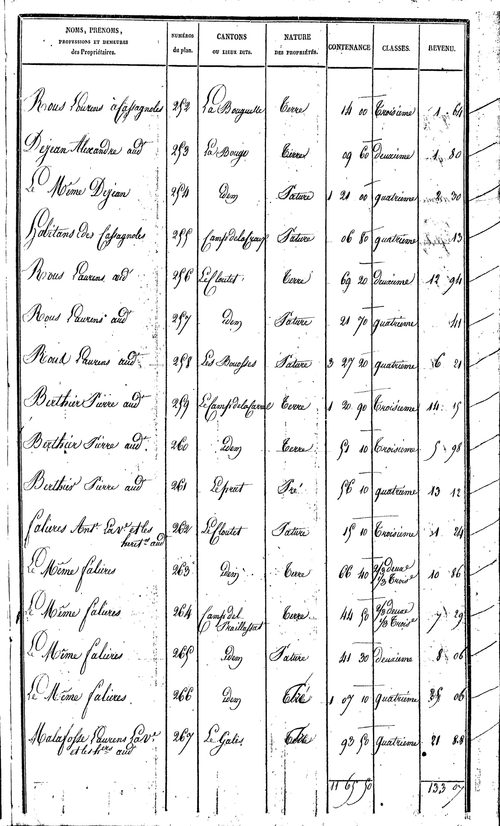 NOMS, PRÉNOMS, PROFESSIONS ET DEMEURES des Propriétaires. NUMÉROS du plan. CANTONS OU LIEUX DITS. NATURE DES PROPRIÉTÉS. CONTENANCE CLASSES. REVENU.
Rous Laurens à Cassagnoles 252 La Bouquette Terre 14 00 Troisieme 1 64
Dejean Alexandre aud 253 La Bouge Terre 09 60 deuxieme 1 80
Le Même Dejean 254 idem Pature 1 21 00 quatrieme 2 30
habitans de Cassagnoles 255 Pature 06 80 quatrieme 13
Rous Laurens aud 256 Le Cloutet Terre 69 20 deuxieme 12 94
Rous Laurens aud 257 idem Pature 21 70 quatrieme 41
Rous Laurens aud 258 Les Bousses Pature 3 27 20 quatrieme 6 21
Berthier Pierre aud 259 Le Camp de la Terre 1 20 90 Troisieme 14 15
Berthier Pierre aud 260 idem Terre 51 10 Troisieme 5 98
Berthier Pierre aud 261 Le prat Pré 56 10 quatrieme 13 12
falieres Ant. La Ve et les 262 Le Cloutet Pature 15 10 Troisieme 1 24
herit. aud
Le Même falieres 263 idem Terre 66 40 2/3 deuxe 10 86
1/3 Trois
Le Même falieres 264 Camp del Terre 44 50 2/3 deuxe 7 29
1/3 Trois
Le Même falieres 265 idem Pature 41 30 deuxieme 8 06
Le Même falieres 266 idem 1 07 10 quatrieme 25 06
Malafosse Laurens La Ve 267 Le Gales 93 50 quatrieme 21 88
et les hers aud
11 65 50 133 07